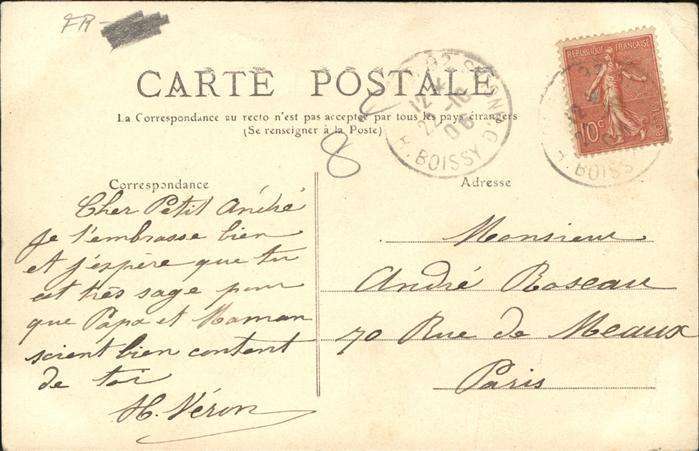 FR-
CARTE POSTALE
La Correspondance au recto n'est pas acceptée par tous les pays étrangers
(Se renseigner à la Poste)
REPUBLIQUE FRANÇAISE
10c
BOISSY
BOISS
8
Correspondance
Cher Petit André
je t'embrasse bien
et j'espère que tu
est très sage pour
que Papa et Maman
soient bien content
de toi
H. Véron
Adresse
Monsieur
André Roseau
70 Rue de Meaux
Paris